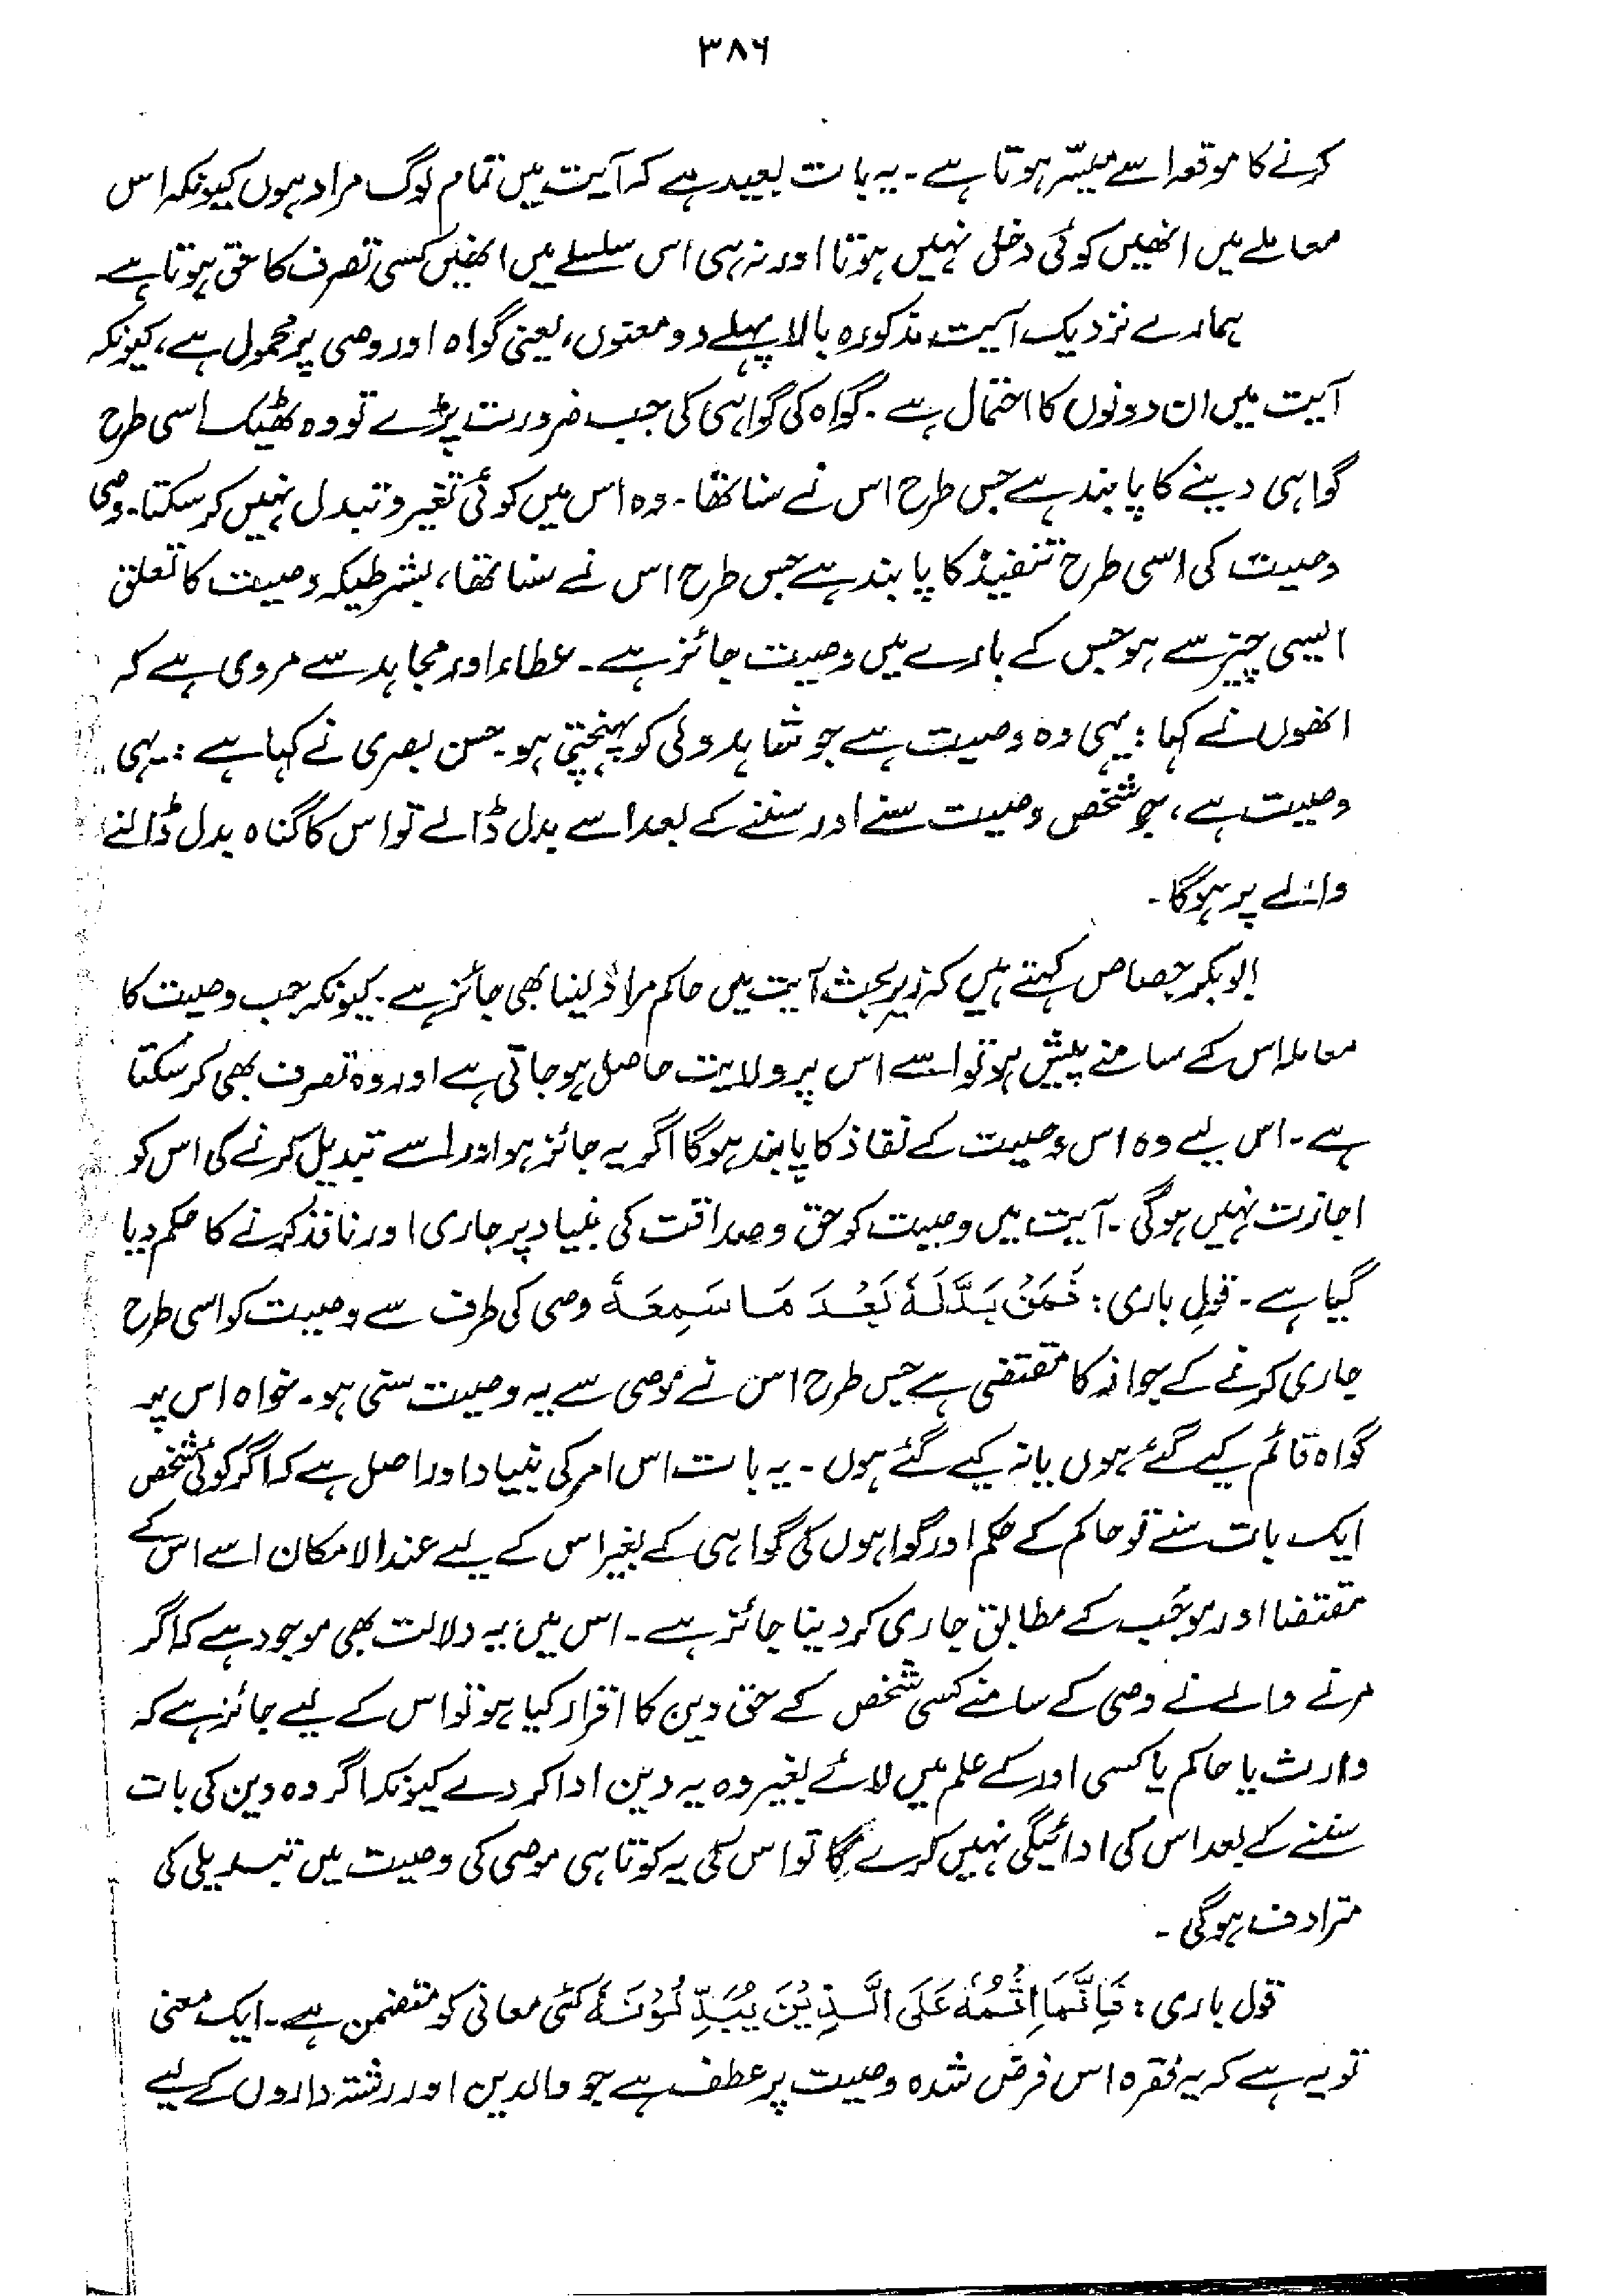 ۳۸۶
کرنے کا موقعہ اسے میسّر ہوتا ہے۔ یہ بات بعید ہے کہ آیت میں تمام لوگ مراد ہوں کیونکہ اس
معاملے میں انھیں کوئی دخل نہیں ہوتا اور نہ ہی اس سلسلے میں انھیں کسی تصرف کا حق ہوتا ہے۔
ہمارے نزدیک آیت مذکورہ بالا پہلے دو معنوں، یعنی گواہ اور وصی پر محمول ہے، کیونکہ
آیت میں ان دونوں کا احتمال ہے۔ گواہ کی گواہی کی جب ضرورت پڑے تو وہ ٹھیک اسی طرح
گواہی دینے کا پابند ہے جس طرح اس نے سنا تھا۔ وہ اس میں کوئی تغیر و تبدل نہیں کر سکتا۔ وصی
وصیت کی اسی طرح تنفیذ کا پابند ہے جس طرح اس نے سنا تھا، بشرطیکہ وصیت کا تعلق
ایسی چیز سے ہو جس کے بارے میں وصیت جائز ہے۔ عطاء اور مجاہد سے مروی ہے کہ
انھوں نے کہا: یہی وہ وصیت ہے جو شاہد ولی کو پہنچتی ہو۔ حسن بصری نے کہا ہے: یہی
وصیت ہے، جو شخص وصیت سنے اور سننے کے بعد اسے بدل ڈالے تو اس کا گناہ بدل ڈالنے
والے پر ہوگا۔
ابوبکر جصاص کہتے ہیں کہ زیر بحث آیت میں حاکم مراد لینا بھی جائز ہے۔ کیونکہ جب وصیت کا
معاملہ اس کے سامنے پیش ہو تو اسے اس پر ولایت حاصل ہو جاتی ہے اور وہ تصرف بھی کر سکتا
ہے۔ اس لیے وہ اس وصیت کے نفاذ کا پابند ہوگا اگر یہ جائز ہو اور اسے تبدیل کرنے کی اس کو
اجازت نہیں ہوگی۔ آیت میں وصیت کو حق و صداقت کی بنیاد پر جاری اور نافذ کرنے کا حکم دیا
گیا ہے۔ قولِ باری: فَمَنْ بَدَّلَهٗ بَعْدَ مَا سَمِعَهٗ وصی کی طرف سے وصیت کو اسی طرح
جاری کرنے کے جواز کا مقتضی ہے جس طرح اس نے موصی سے یہ وصیت سنی ہو۔ خواہ اس پر
گواہ قائم کیے گئے ہوں یا نہ کیے گئے ہوں۔ یہ بات اس امر کی بنیاد اور اصل ہے کہ اگر کوئی شخص
ایک بات سنے تو حاکم کے حکم اور گواہوں کی گواہی کے بغیر اس کے لیے عند الامکان اسے اس کے
مقتضا اور موجَب کے مطابق جاری کر دینا جائز ہے۔ اس میں یہ دلالت بھی موجود ہے کہ اگر
مرنے والے نے وصی کے سامنے کسی شخص کے حق دین کا اقرار کیا ہو تو اس کے لیے جائز ہے کہ
وارث یا حاکم یا کسی اور کے علم میں لائے بغیر وہ یہ دین ادا کر دے کیونکہ اگر وہ دین کی بات
سننے کے بعد اس کی ادائیگی نہیں کرے گا تو اس کی یہ کوتاہی موصی کی وصیت میں تبدیلی کی
مترادف ہوگی۔
قول باری: فَاِنَّمَا اِثْمُهٗ عَلَى الَّذِيْنَ يُبَدِّلُوْنَهٗ کئی معانی کو متضمن ہے۔ ایک معنی
تو یہ ہے کہ یہ فقرہ اس فرض شدہ وصیت پر عطف ہے جو والدین اور رشتہ داروں کے لیے